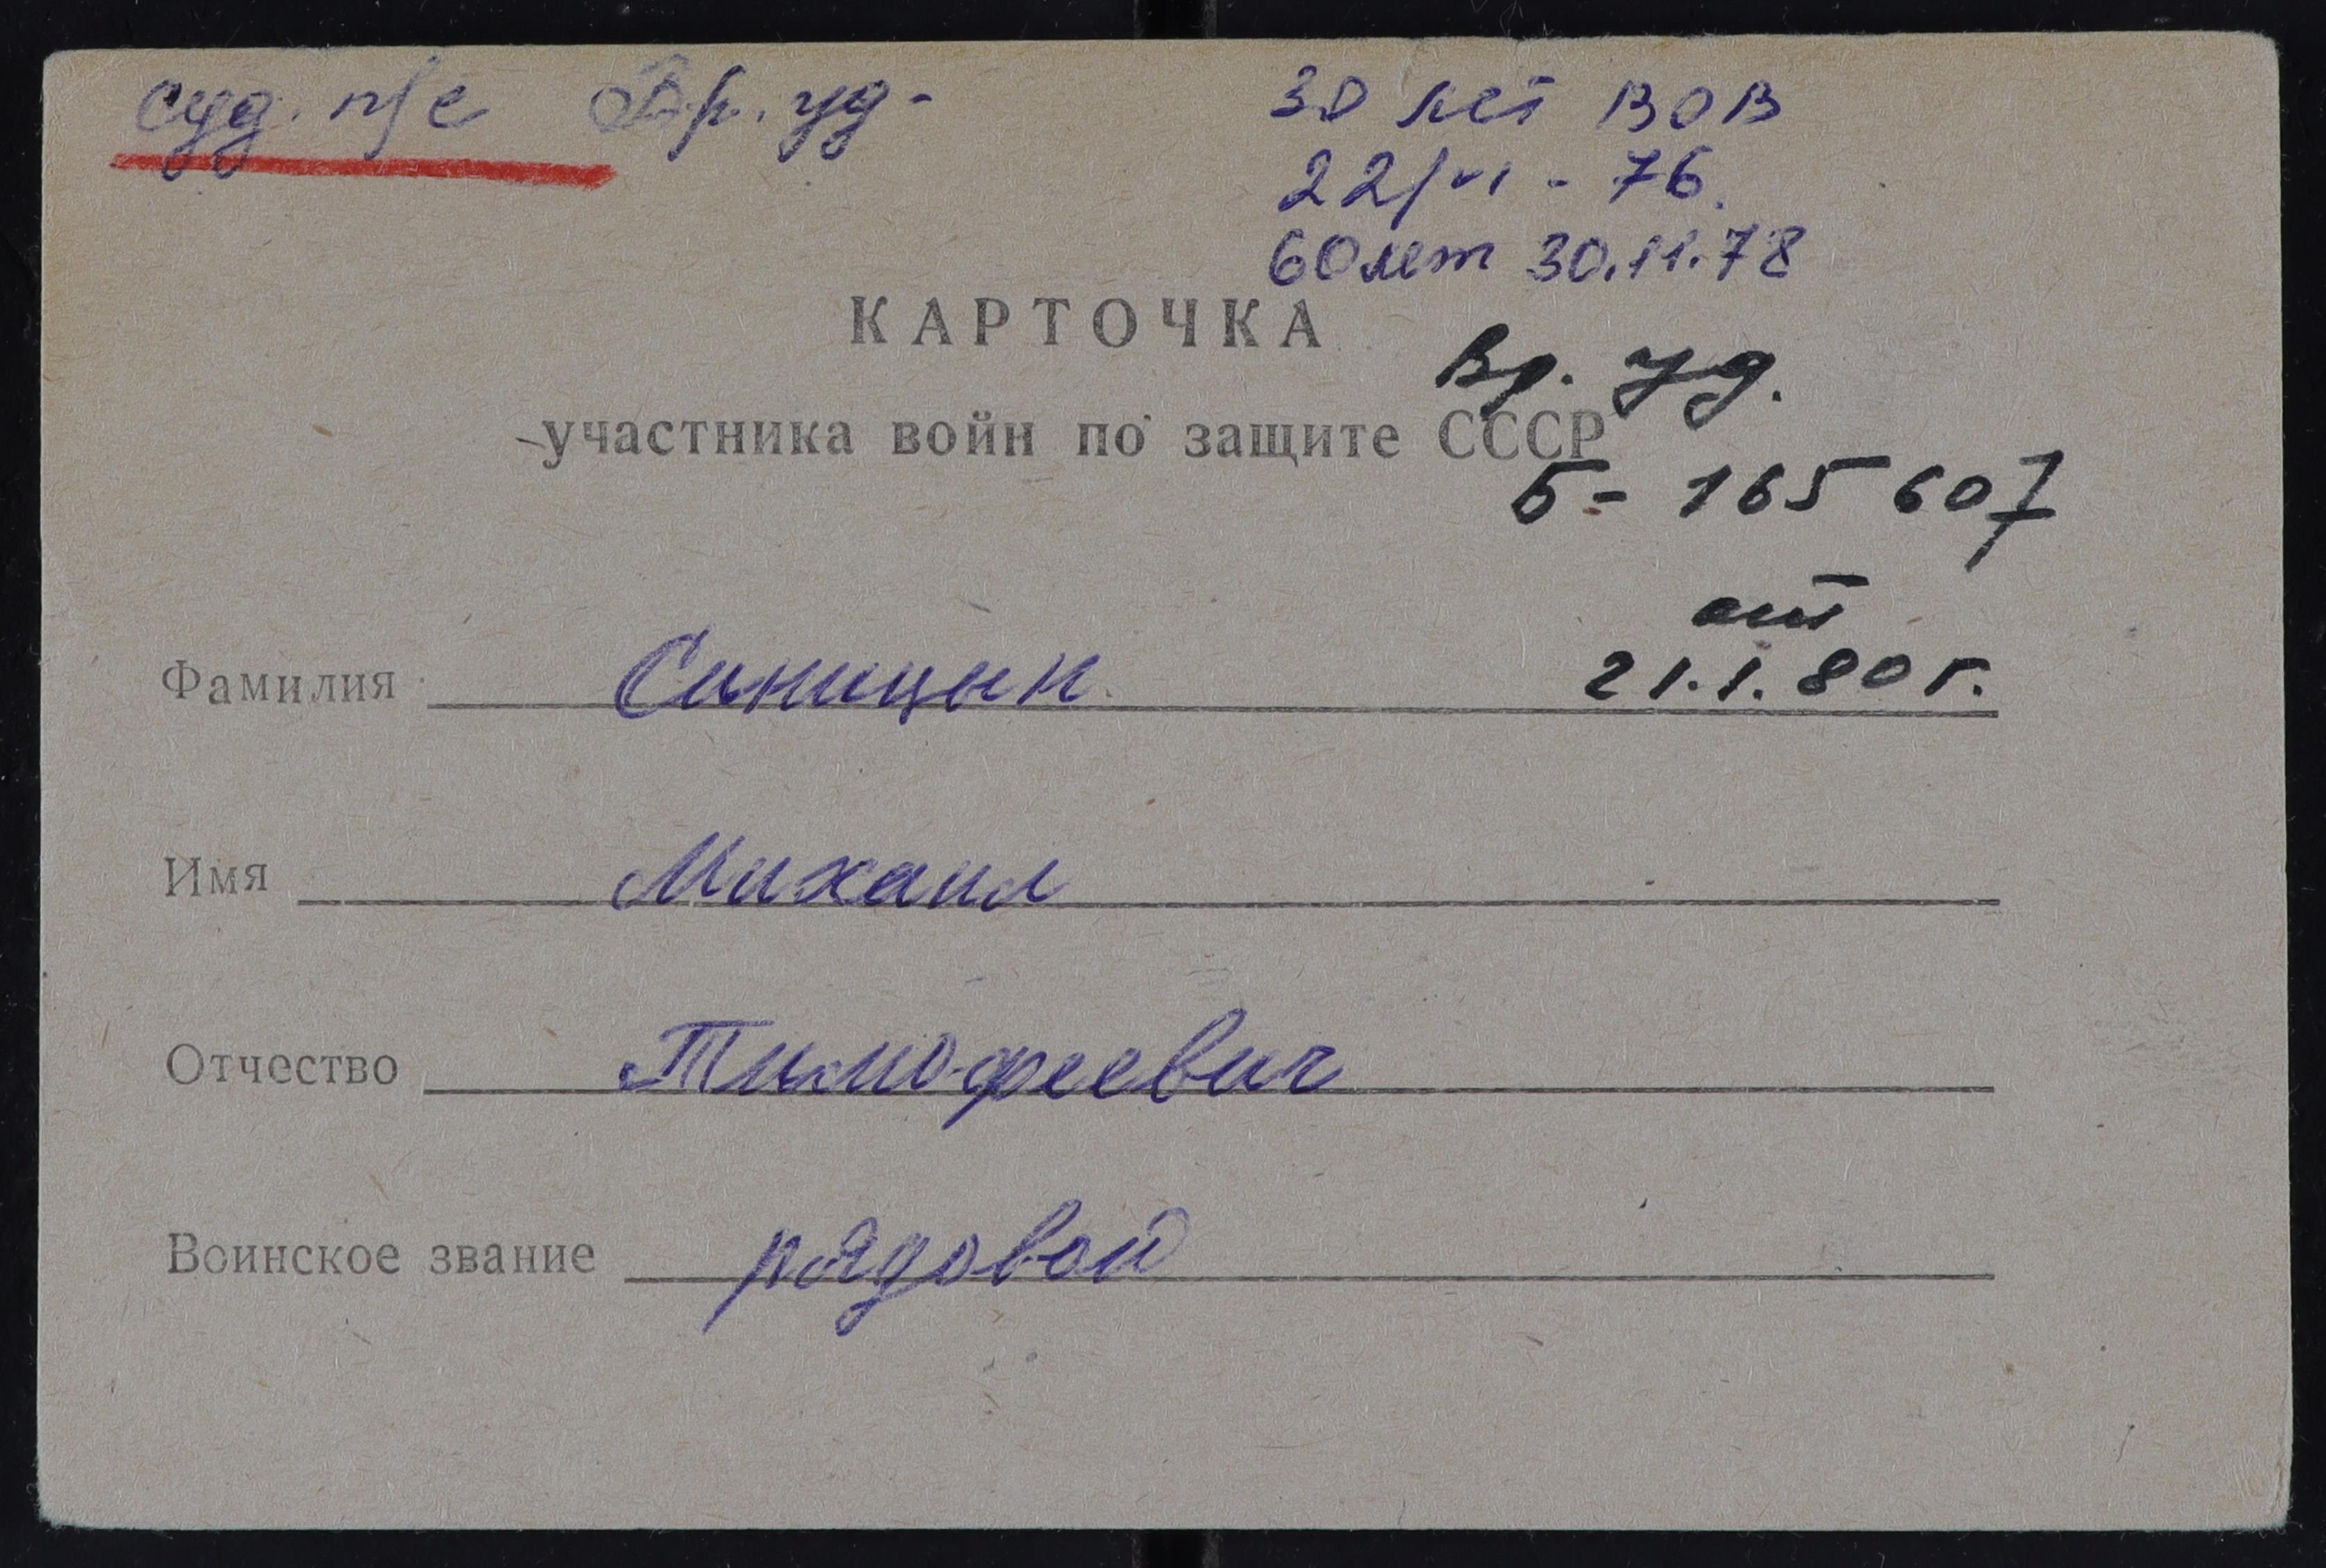 суд. п/с Вр. уд-
30 лет ВОВ
22/VI - 76.
60 лет 30.11.78
КАРТОЧКА
Вр. уд.
участника войн по защите СССР
Б- 165607
от
21.1.80 г.
Фамилия Синицын
Имя Михаил
Отчество Тимофеевич
Воинское звание рядовой